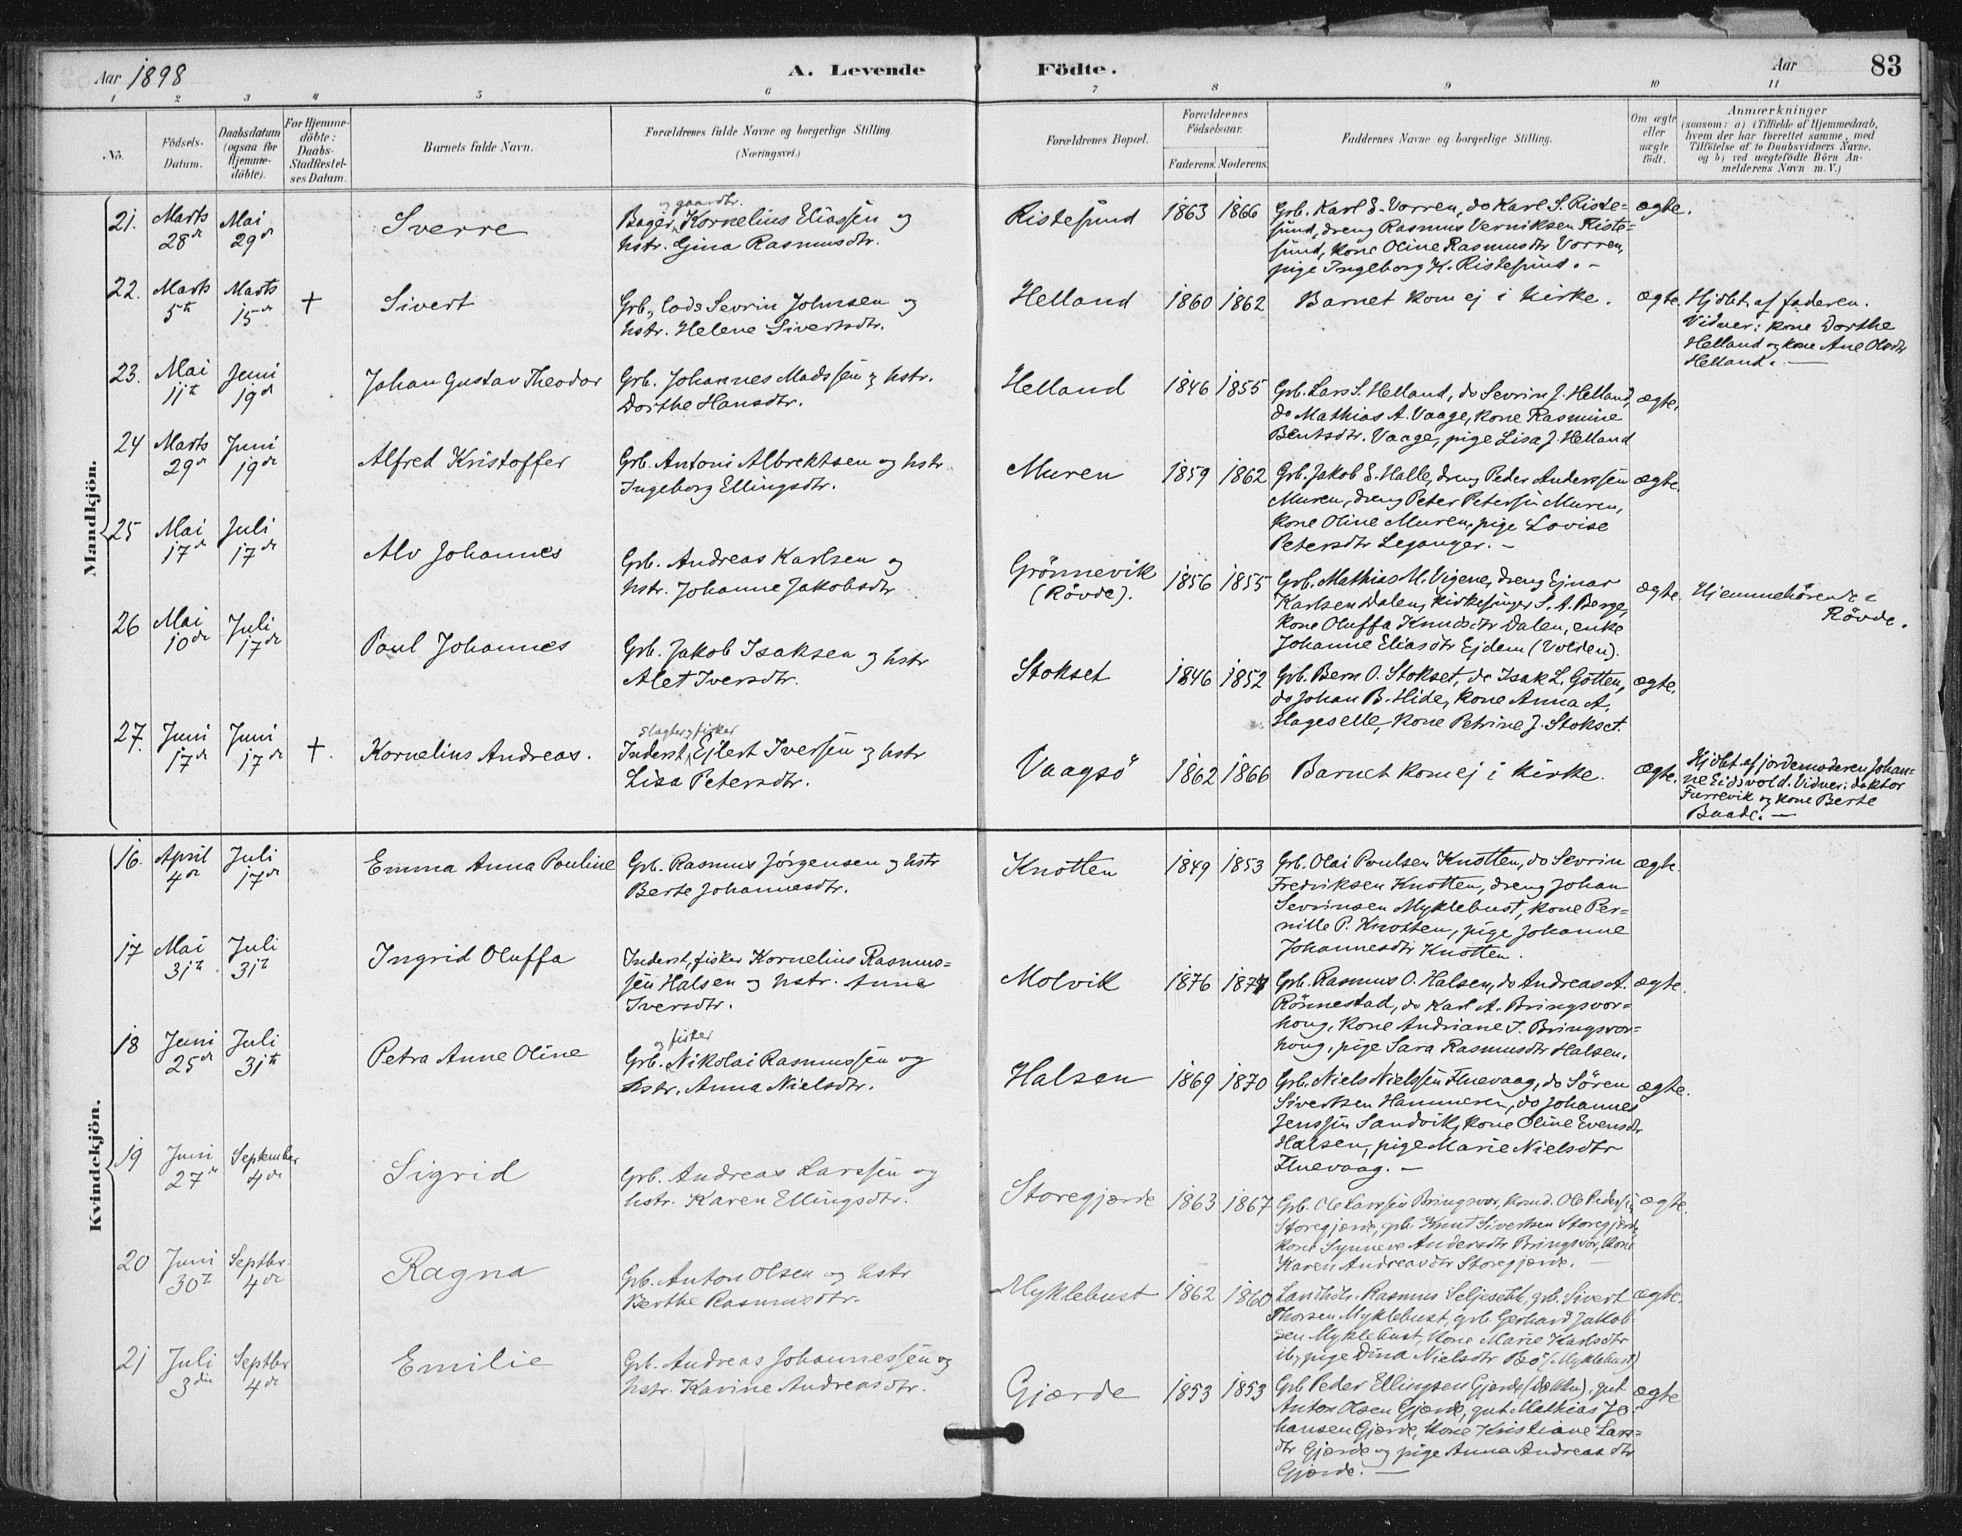 Aar 1898
A. Levende Födte.
Aar 83
1 2 3 4 5 6 7 8 9 10 11
No.
Födsels-
Datum.
Daabsdatum
(ogsaa for
Hjemme-
döbte).
For Hjemme-
döbte:
Daabs-
Stadfæstel-
ses Datum.
Barnets fulde Navn.
Forældrenes fulde Navne og borgerlige Stilling.
(Næringsvei.)
Forældrenes Bopæl.
Forældrenes
Födselsaar.
Faderens. Moderens.
Faddernes Navne og borgerlige Stilling.
Om ægte
eller
uægte
født.
Anmærkninger
(saasom: a) i Tilfælde af Hjemmedaab,
hvem der har forrettet samme, med
Tilföielse af to Daabsvidners Navne,
og b) ved uægtefödte Börn An-
melderens Navn m. V.)
Mandkjön.
21. Marts 28de Mai 29de
Sverre
og gaardbr.
Bager, Kornelius Eliassen og
hstr. Gina Rasmusdtr.
Ristesund 1863 1866
Grb. Karl E. Vorren, do Karl S. Riste-
sund, dreng Rasmus Verniksen Riste-
sund, kone Oline Rasmusdtr Vorren,
pige Ingeborg K. Ristesund. -
ægte.
22. Marts 5te Marts 15de +
Sivert
Grb., lods Sevrin Johnsen og
hstr. Helene Sivertsdtr.
Helland 1860 1862
Barnet kom ej i kirke.
ægte.
Hjdbt. af faderen.
Vidner: kone Dorthe
Helland og kone Ane Olsdtr
Helland. -
23. Mai 11te Juni 19de
Johan Gustav Theodor
Grb. Johannes Madssen og hstr.
Dorthe Hansdtr.
Helland 1846 1855
Grb. Lars S. Helland, do Sevrin J. Helland,
do Mathias A. Vaage, kone Rasmine
Bentsdtr. Vaage, pige Lisa J. Helland
ægte.
24 Marts 29de Juni 19de
Alfred Kristoffer
Grb. Antoni Albrektsen og hstr
Ingeborg Ellingsdtr.
Muren 1859 1862
Grb. Jakob E. Halle, dreng Peder Anderssen
Muren, dreng Peter Petersen Muren,
kone Oline Muren, pige Lovise
Petersdtr Leganger. -
ægte.
25 Mai 17de Juli 17de
Alv Johannes
Grb. Andreas Karlsen og
hstr. Johanne Jakobsdtr
Grönnevik
(Røvde).
1856 1855
Grb. Mathias M. Vigene, dreng Ejnar
Karlsen Dalen, kirkesanger S. A. Berge,
kone Oluffa Knudsdtr Dalen, enke
Johanne Eliasdtr Ejdem (Volden).
ægte.
Hjemmehörende i
Røvde.
26 Mai 10de Juli 17de
Paul Johannes
Grb. Jakob Isaksen og hstr
Alet Iversdtr.
Stokset 1846 1852
Grb. Bern O. Stokset, do Isak L. Gotten,
do Johan B. Hide, kone Anna A.
Hageselle, kone Petrine J. Stokset.
ægte.
27. Juni 17de Juni 17de +.
Kornelius Andreas.
slagter og fisker
Inderst, Ejlert Iversen og hstr
Lisa Petersdtr.
Vaagsö 1862 1866
Barnet kom ej i kirke.
ægte.
Hjdbt. af jordemoderen Johan-
ne Eidsvold. Vidner: doktor
Furrevik og kone Berte
Baade. -
Kvindekjön.
16. April 4de Juli 17de
Emma Anna Pauline
Grb. Rasmus Jörgensen og hstr
Berte Johannesdtr.
Knotten 1849 1853
Grb. Olai Poulsen Knotten, do Sevrin
Fredriksen Knotten, dreng Johan
Sevrinsen Myklebust, kone Per-
nille P. Knotten, pige Johanne
Johannesdtr Knotten.
ægte.
17 Mai 31te Juli 31te
Ingrid Oluffa
Inderst, fisker Kornelius Rasmus-
sen Halsen og hstr. Anne
Iversdtr.
Molvik 1876
Grb. Rasmus O. Halsen, do Andreas A.
Rönnestad, do Karl A. Bringsvor-
houg, kone Andriane S. Bringsvor-
houg, pige Sara Rasmusdtr Halsen.
ægte.
18 Juni 25de Juli 31te
Petra Anne Oline
og fisker
Grb. Nikolai Rasmussen og
hstr. Anna Nielsdtr.
Halsen 1869 1870
Grb. Niels Nielssen Fluevaag, do Sören
Sivertsen Hammeren, do Johannes
Jenssen Sandvik, kone Oline Evensdtr
Halsen, pige Marie Nielsdtr
Fluevaag. -
ægte.
19 Juni 27de September 4de
Sigrid
Grb. Andreas Larssen og
hstr. Karen Ellingsdtr.
Storegjærde 1863 1867
Grb. Ole Larssen Bringsvor, Ole Pedersen
Storegjærde, grb. Knut Sivertsen Storegjærde,
kone Synneve Andersdtr Bringsvor, kone
Karen Andreasdtr Storegjærde. -
ægte.
20 Juni 30te Septbr. 4de
Ragna
Grb. Anton Olsen og hstr
Berthe Rasmusdtr.
Myklebust 1862 1860
Landhdlr. Rasmus Seljeseth, grb. Sivert
Thorsen Myklebust, grb. Gerhard Jakob-
sen Myklebust, kone Marie Karlsdtr
ib., pige Dina Nielsdtr Bö (Myklebust)
ægte.
21 Juli 3die Septbr 4de
Emilie
Grb. Andreas Johannessen og
hstr. Karine Andreasdtr.
Gjærde 1853 1853
Grb. Peder Ellingsen Gjærde, gut
Anton Olsen Gjærde, gut Mathias Jo-
hansen Gjærde, kone Kristiane Lars-
dtr Gjærde og pige Anna Andreasdtr
Gjærde. -
ægte